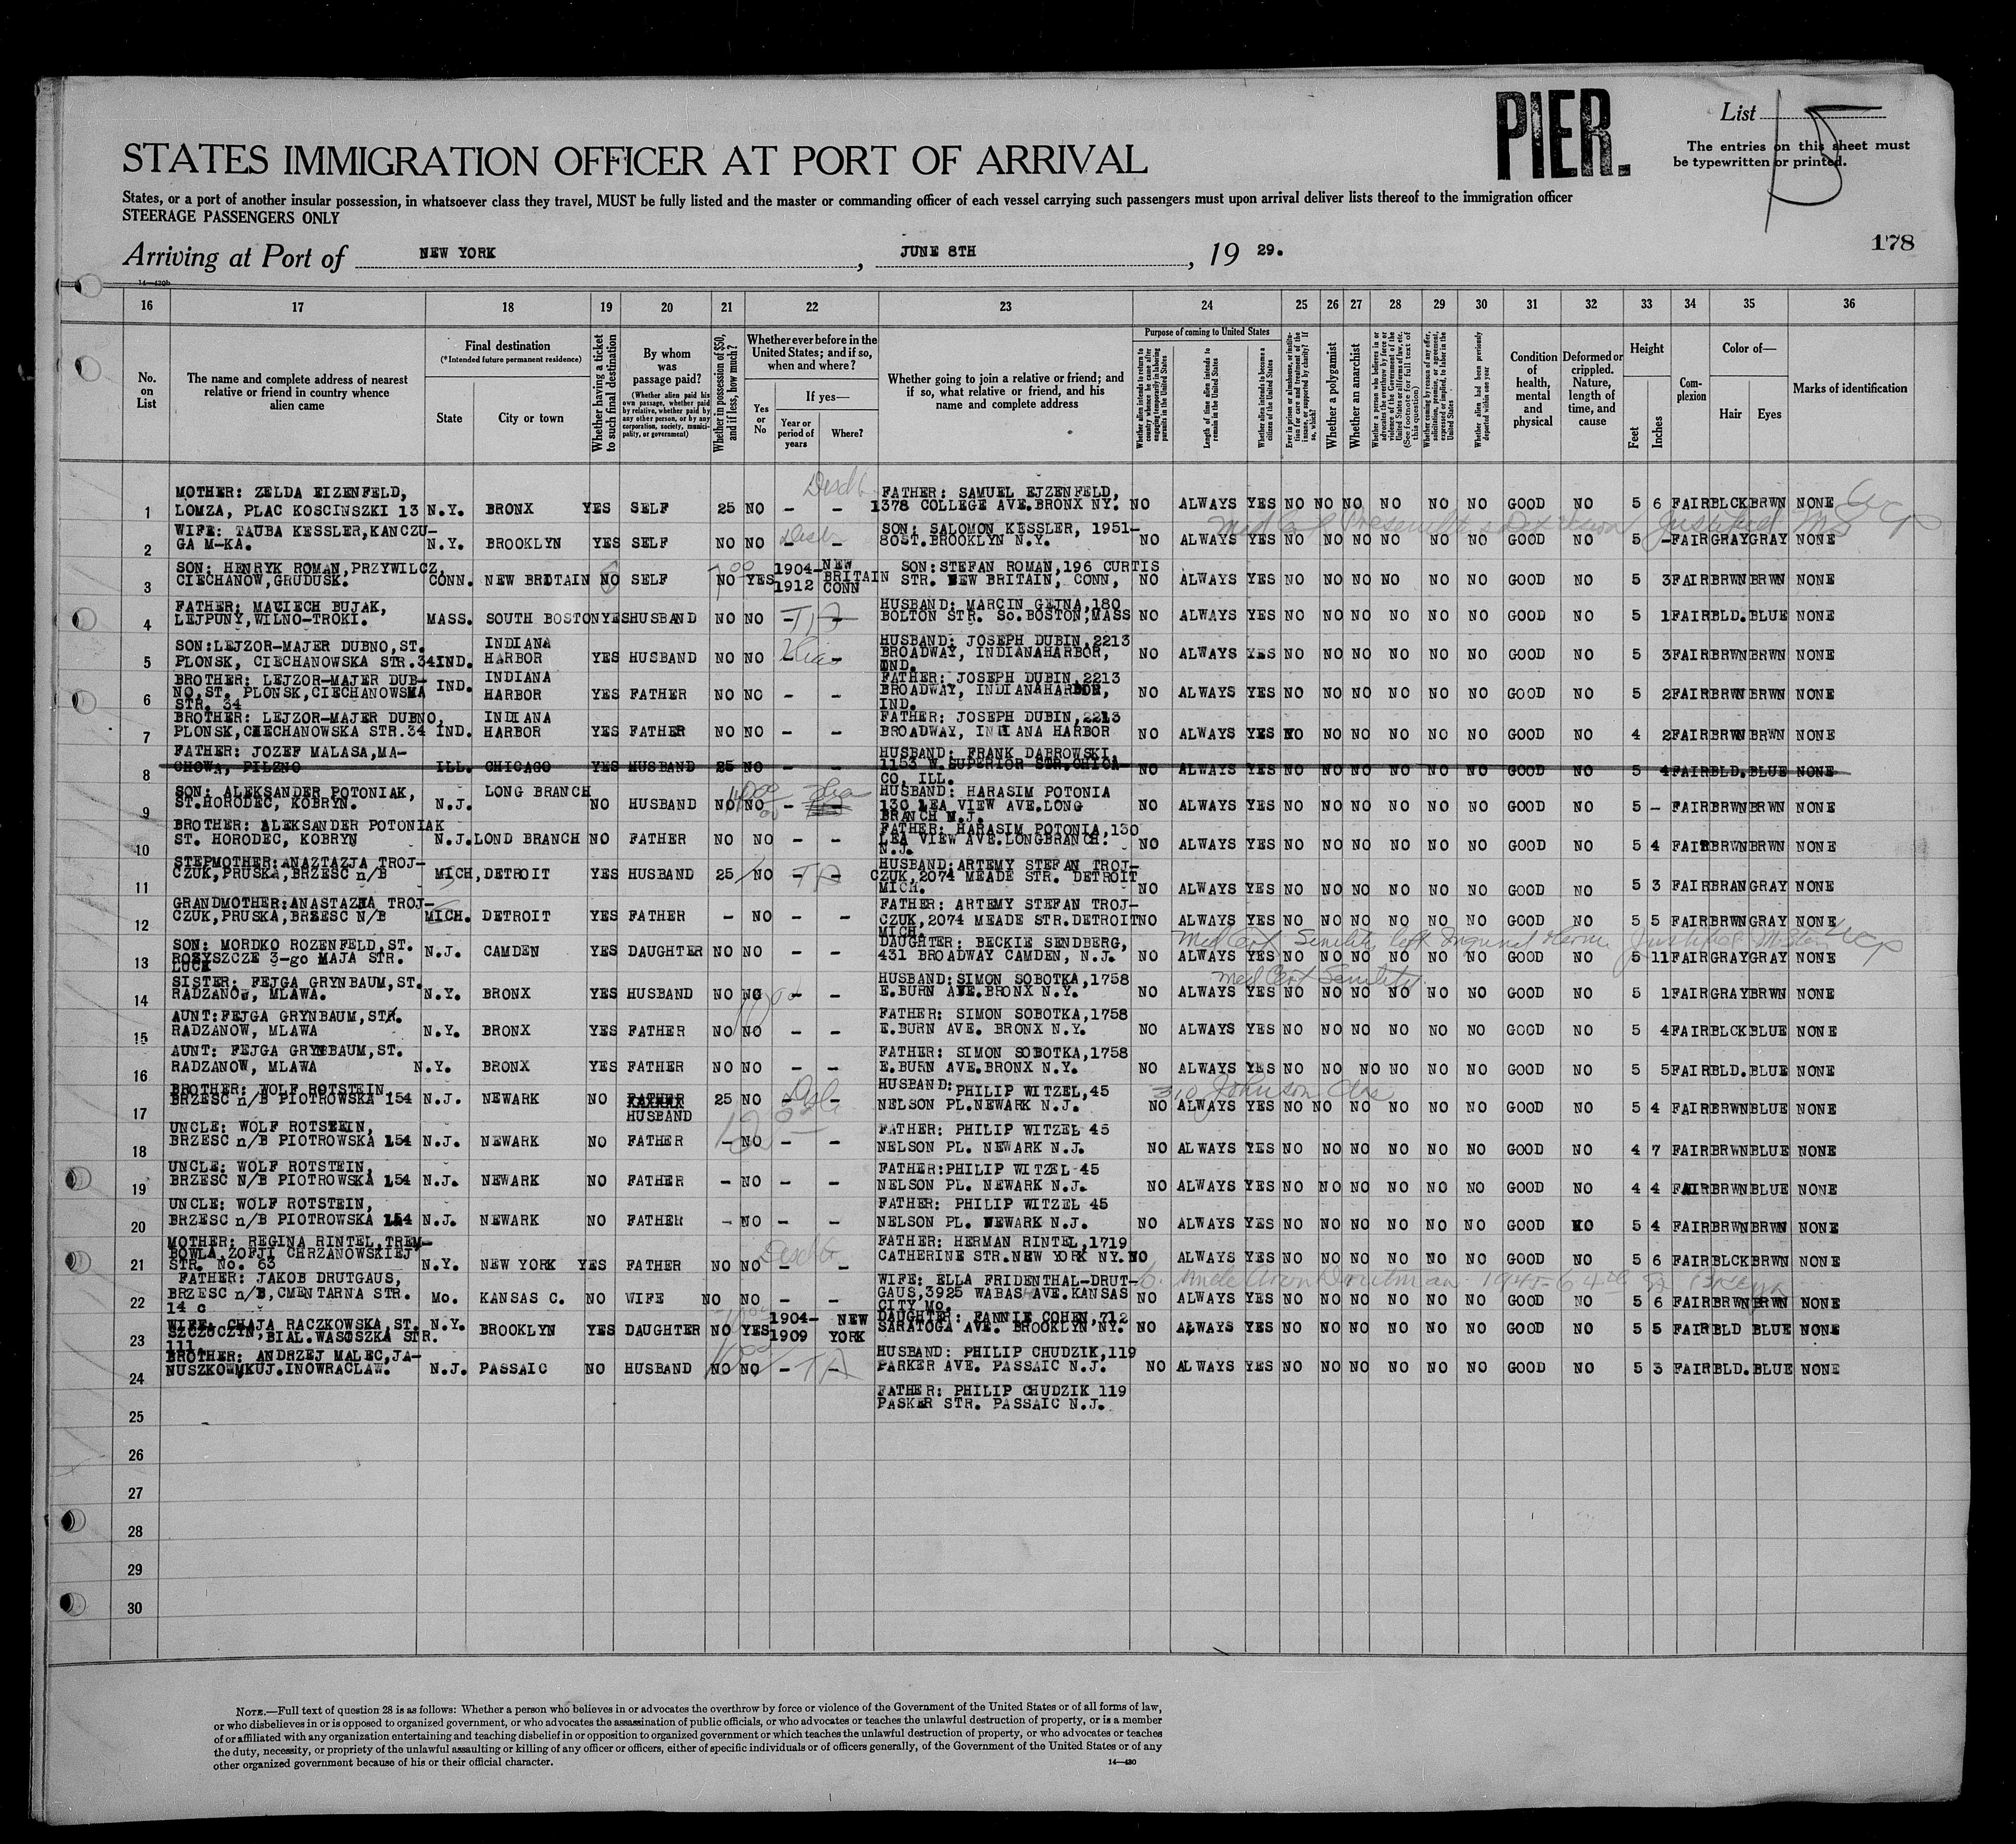 PIER.
List 15
The entries on this sheet must
be typewritten or printed.
STATES IMMIGRATION OFFICER AT PORT OF ARRIVAL
States, or a port of another insular possession, in whatsoever class they travel, MUST be fully listed and the master or commanding officer of each vessel carrying such passengers must upon arrival deliver lists thereof to the immigration officer
STEERAGE PASSENGERS ONLY
178
Arriving at Port of NEW YORK, JUNE 8TH, 19 29.
14—430b
16 17 18 19 20 21 22 23 24 25 26 27 28 29 30 31 32 33 34 35 36
No. on List
The name and complete address of nearest relative or friend in country whence alien came
Final destination
(*Intended future permanent residence)
State
City or town
Whether having a ticket to such final destination
By whom was passage paid?
(Whether alien paid his own passage, whether paid by relative, whether paid by any other person, or by any corporation, society, municipality, or government)
Whether in possession of $50, and if less, how much?
Whether ever before in the United States; and if so, when and where?
Yes or No
If yes—
Year or period of years
Where?
Whether going to join a relative or friend; and if so, what relative or friend, and his name and complete address
Purpose of coming to United States
Whether alien intends to return to country whence he came after engaging temporarily in laboring pursuits in the United States
Length of time alien intends to remain in the United States
Whether alien intends to become a citizen of the United States
Ever in prison or almshouse, or institution for care and treatment of the insane, or supported by charity? If so, which?
Whether a polygamist
Whether an anarchist
Whether a person who believes in or advocates the overthrow by force or violence of the Government of the United States or all forms of law, etc. (See footnote for full text of this question)
Whether coming by reason of any offer, solicitation, promise, or agreement, expressed or implied, to labor in the United States
Whether alien had been previously deported within one year
Condition of health, mental and physical
Deformed or crippled. Nature, length of time, and cause
Height
Feet
Inches
Complexion
Color of—
Hair
Eyes
Marks of identification
1 MOTHER: ZELDA EIZENFELD, LOMZA, PLAC KOSCINSZKI 13 N.Y. BRONX YES SELF 25 NO – – FATHER: SAMUEL EJZENFELD, 1378 COLLEGE AVE.BRONX NY. NO ALWAYS YES NO NO NO NO NO NO GOOD NO 5 6 FAIR BLCK BRWN NONE
2 WIFE: TAUBA KESSLER,KANCZUGA M-KA. N.Y. BROOKLYN YES SELF NO NO – – SON: SALOMON KESSLER, 1951-80ST.BROOKLYN N.Y. NO ALWAYS YES NO NO NO NO NO NO GOOD NO 5 – FAIR GRAY GRAY NONE
3 SON: HENRYK ROMAN,PRZYWILCZ, CIECHANOW,GRUDUSK. CONN. NEW BRITAIN NO SELF NO YES 1904-1912 NEW BRITAIN CONN SON:STEFAN ROMAN,196 CURTIS STR. NEW BRITAIN, CONN, NO ALWAYS YES NO NO NO NO NO NO GOOD NO 5 3 FAIR BRWN BRWN NONE
4 FATHER: MACIECH BUJAK, LEJPUNY,WILNO-TROKI. MASS. SOUTH BOSTON YES HUSBAND NO NO – – HUSBAND: MARCIN GEJNA,180 BOLTON STR. SO.BOSTON,MASS NO ALWAYS YES NO NO NO NO NO NO GOOD NO 5 1 FAIR BLD. BLUE NONE
5 SON:LEJZOR-MAJER DUBNO,ST. PLONSK, CIECHANOWSKA STR.34 IND. INDIANA HARBOR YES HUSBAND NO NO – – HUSBAND: JOSEPH DUBIN,2213 BROADWAY, INDIANAHARBOR, IND. NO ALWAYS YES NO NO NO NO NO NO GOOD NO 5 3 FAIR BRWN BRWN NONE
6 BROTHER: LEJZOR-MAJER DUBNO,ST. PLONSK,CIECHANOWSKA STR. 34 IND. INDIANA HARBOR YES FATHER NO NO – – FATHER: JOSEPH DUBIN,2213 BROADWAY, INDIANAHARBOR, IND. NO ALWAYS YES NO NO NO NO NO NO GOOD NO 5 2 FAIR BRWN BRWN NONE
7 BROTHER: LEJZOR-MAJER DUBNO, PLONSK,CIECHANOWSKA STR.34 IND. INDIANA HARBOR YES FATHER NO NO – – FATHER: JOSEPH DUBIN,2213 BROADWAY, INDIANA HARBOR NO ALWAYS YES NO NO NO NO NO NO GOOD NO 4 2 FAIR BRWN BRWN NONE
8 FATHER: JOZEF MALASA,MACHOWA, PILZNO ILL. CHICAGO YES HUSBAND 25 NO – – HUSBAND: FRANK DABROWSKI, 1153 W.SUPERIOR STR.CHICACO, ILL. NO ALWAYS YES NO NO NO NO NO NO GOOD NO 5 4 FAIR BLD. BLUE NONE
9 SON: ALEKSANDER POTONIAK, ST.HORODEC, KOBRYN. N.J. LONG BRANCH NO HUSBAND NO NO – HUSBAND: HARASIM POTONIA 130 LEA VIEW AVE.LONG BRANCH N.J. NO ALWAYS YES NO NO NO NO NO NO GOOD NO 5 – FAIR BRWN BRWN NONE
10 BROTHER: ALEKSANDER POTONIAK ST. HORODEC, KOBRYN N.J. LOND BRANCH NO FATHER NO NO – – FATHER: HARASIM POTONIA,130 LEA VIEW AVE.LONGBRANCH. N.J. NO ALWAYS YES NO NO NO NO NO NO GOOD NO 5 4 FAIR BRWN BRWN NONE
11 STEPMOTHER:ANAZTAZJA TROJCZUK,PRUSKA,BRZESC n/B MICH, DETROIT YES HUSBAND 25 NO – – HUSBAND:ARTEMY STEFAN TROJCZUK,2074 MEADE STR. DETROIT MICH. NO ALWAYS YES NO NO NO NO NO NO GOOD NO 5 3 FAIR BRAN GRAY NONE
12 GRANDMOTHER:ANASTAZJA TROJCZUK,PRUSKA,BRZESC N/B MICH. DETROIT YES FATHER – NO – – FATHER: ARTEMY STEFAN TROJCZUK,2074 MEADE STR.DETROIT MICH. NO ALWAYS YES NO NO NO NO NO NO GOOD NO 5 5 FAIR BRWN GRAY NONE
Med Cert Senility left Inguinal Hernia
13 SON: MORDKO ROZENFELD,ST. ROZYSZCZE 3-go MAJA STR. LUCK N.J. CAMDEN YES DAUGHTER NO NO – – DAUGHTER: BECKIE SENDBERG, 431 BROADWAY CAMDEN, N.J. NO ALWAYS YES NO NO NO NO NO NO GOOD NO 5 11 FAIR GRAY GRAY NONE
Med Cert Senility
14 SISTER: FEJGA GRYNBAUM,ST. RADZANOW, MLAWA. N.Y. BRONX YES HUSBAND NO NO – – HUSBAND:SIMON SOBOTKA,1758 E.BURN AVE.BRONX N.Y. NO ALWAYS YES NO NO NO NO NO NO GOOD NO 5 1 FAIR GRAY BRWN NONE
15 AUNT:FEJGA GRYNBAUM,STR. RADZANOW, MLAWA N.Y. BRONX YES FATHER NO NO – – FATHER: SIMON SOBOTKA,1758 E.BURN AVE. BRONX N.Y. NO ALWAYS YES NO NO NO NO NO NO GOOD NO 5 4 FAIR BLCK BLUE NONE
16 AUNT: FEJGA GRYNBAUM,ST. RADZANOW, MLAWA N.Y. BRONX YES FATHER NO NO – – FATHER: SIMON SOBOTKA,1758 E.BURN AVE.BRONX N.Y. NO ALWAYS YES NO NO NO NO NO NO GOOD NO 5 5 FAIR BLD. BLUE NONE
310 Johnson
17 BROTHER: WOLF ROTSTEIN, BRZESC n/B PIOTROWSKA 154 N.J. NEWARK NO FATHER HUSBAND 25 NO – – HUSBAND: PHILIP WITZEL,45 NELSON PL.NEWARK N.J. NO ALWAYS YES NO NO NO NO NO NO GOOD NO 5 4 FAIR BRWN BLUE NONE
18 UNCLE: WOLF ROTSTEIN, BRZESC n/B PIOTROWSKA 154 N.J. NEWARK NO FATHER – NO – – FATHER: PHILIP WITZEL 45 NELSON PL. NEWARK N.J. NO ALWAYS YES NO NO NO NO NO NO GOOD NO 4 7 FAIR BRWN BLUE NONE
19 UNCLE: WOLF ROTSTEIN, BRZESC N/B PIOTROWSKA 154 N.J. NEWARK NO FATHER – NO – – FATHER:PHILIP WITZEL 45 NELSON PL. NEWARK N.J. NO ALWAYS YES NO NO NO NO NO NO GOOD NO 4 4 FAIR BRWN BLUE NONE
20 UNCLE: WOLF ROTSTEIN, BRZESC n/B PIOTROWSKA 154 N.J. NEWARK NO FATHER – NO – – FATHER: PHILIP WITZEL 45 NELSON PL. NEWARK N.J. NO ALWAYS YES NO NO NO NO NO NO GOOD NO 5 4 FAIR BRWN BRWN NONE
21 MOTHER: REGINA RINTEL,TREMBOWLA,ZOFJI CHRZANOWSKIEJ STR. No. 63 N.Y. NEW YORK YES FATHER NO NO – – FATHER: HERMAN RINTEL,1719 CATHERINE STR.NEW YORK NY. NO ALWAYS YES NO NO NO NO NO NO GOOD NO 5 6 FAIR BLCK BRWN NONE
22 FATHER: JAKOB DRUTGAUS, BRZESC n/B,CMENTARNA STR. 14 c Mo. KANSAS C. NO WIFE NO NO – – WIFE: ELLA FRIDENTHAL-DRUTGAUS,3925 WABAS AVE.KANSAS CITY Mo. NO ALWAYS YES NO NO NO NO NO NO GOOD NO 5 6 FAIR BRWN BRWN NONE
23 WIFE: CHAJA RACZKOWSKA,ST. SZCZUCZYN,BIAL.WASOSZKA STR. 111. N.Y. BROOKLYN YES DAUGHTER NO YES 1904-1909 NEW YORK DAUGHTER: FANNIE COHEN,712 SARATOGA AVE. BROOKLYN NY. NO ALWAYS YES NO NO NO NO NO NO GOOD NO 5 5 FAIR BLD BLUE NONE
24 BROTHER: ANDRZEJ MALEC,JANUSZKOWKUJ.INOWRACLAW. N.J. PASSAIC NO HUSBAND NO NO – – HUSBAND: PHILIP CHUDZIK,119 PARKER AVE. PASSAIC N.J. NO ALWAYS YES NO NO NO NO NO NO GOOD NO 5 3 FAIR BLD. BLUE NONE
25 FATHER: PHILIP CHUDZIK 119 PASKER STR. PASSAIC N.J.
26
27
28
29
30
NOTE.—Full text of question 28 is as follows: Whether a person who believes in or advocates the overthrow by force or violence of the Government of the United States or of all forms of law,
or who disbelieves in or is opposed to organized government, or who advocates the assassination of public officials, or who advocates or teaches the unlawful destruction of property, or is a member
of or affiliated with any organization entertaining and teaching disbelief in or opposition to organized government or which teaches the unlawful destruction of property, or who advocates or teaches
the duty, necessity, or propriety of the unlawful assaulting or killing of any officer or officers, either of specific individuals or of officers generally, of the Government of the United States or of any
other organized government because of his or their official character.
14—430